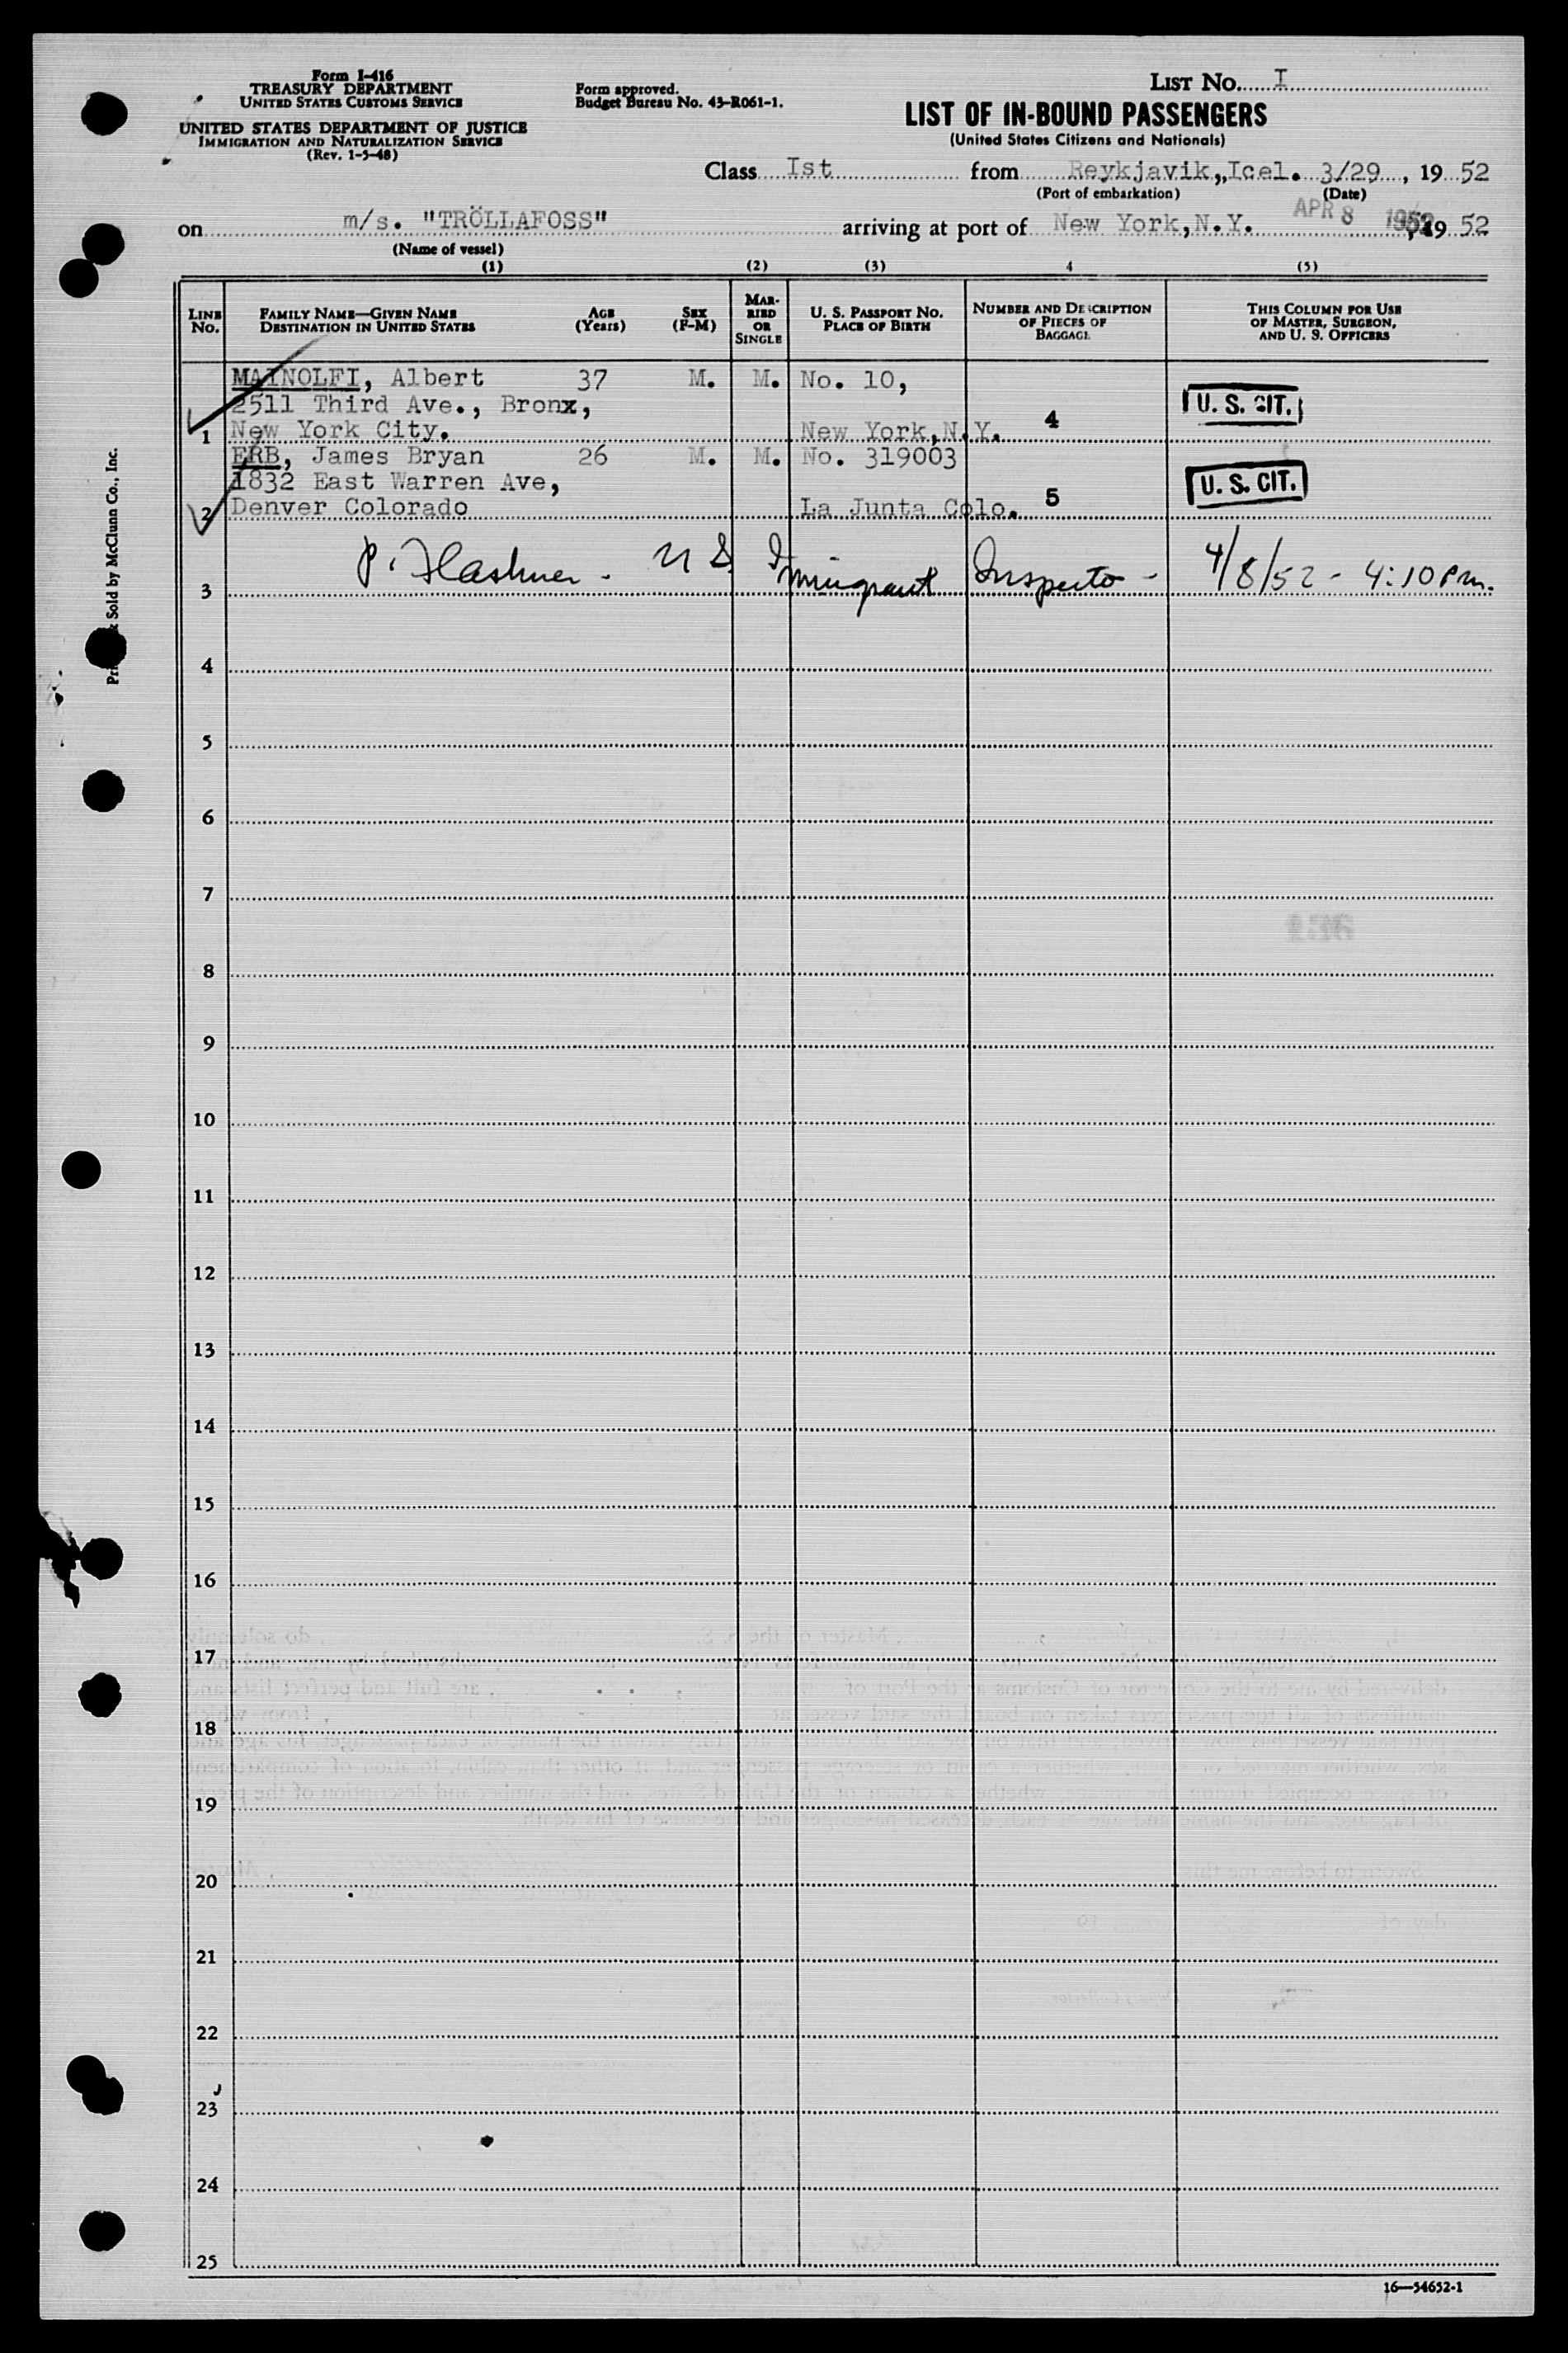 Form I-416
TREASURY DEPARTMENT
UNITED STATES CUSTOMS SERVICE
UNITED STATES DEPARTMENT OF JUSTICE
IMMIGRATION AND NATURALIZATION SERVICE
(Rev. 1-5-48)
Form approved.
Budget Bureau No. 43-R061-1.
LIST No. I
LIST OF IN-BOUND PASSENGERS
(United States Citizens and Nationals)
Class Ist from Reykjavik,,Icel. 3/29 , 19 52
(Port of embarkation) (Date)
on m/s. "TRÖLLAFOSS" arriving at port of New York,N.Y. APR 8 1952 , 19 52
(Name of vessel)
(1) (2) (3) 4 (5)
LINE No. FAMILY NAME—GIVEN NAME DESTINATION IN UNITED STATES AGE (Years) SEX (F-M) MARRIED OR SINGLE U. S. PASSPORT No. PLACE OF BIRTH NUMBER AND DESCRIPTION OF PIECES OF BAGGAGE THIS COLUMN FOR USE OF MASTER, SURGEON, AND U. S. OFFICERS
MAINOLFI, Albert 37 M. M. No. 10,
2511 Third Ave., Bronx, 4 U. S. CIT.
1 New York City. New York,N.Y.
ERB, James Bryan 26 M. M. No. 319003
1832 East Warren Ave, 5 U. S. CIT.
2 Denver Colorado La Junta Colo.
3 P. Flashner - U S Immigrant Inspector - 4/8/52 - 4:10 Pm.
4
5
6
7
8
9
10
11
12
13
14
15
16
17
18
19
20
21
22
23
24
25
16—54652-1
Sold by McClunn Co., Inc.